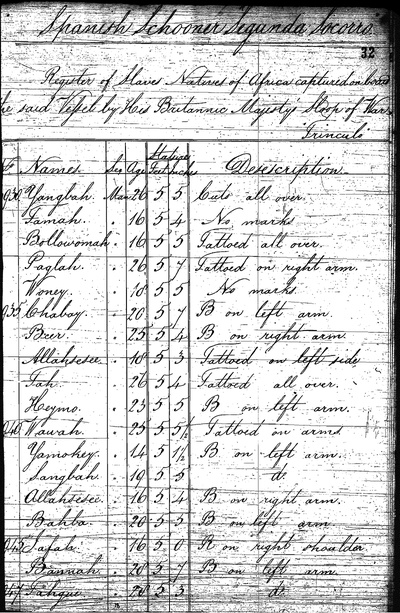 Spanish Schooner Segunda Socorro.
32
Register of Slaves Natives of Africa captured on board
the said Vessel by His Britannic Majesty's Sloop of War
Trinculo
No Names. Sex Age Stature Feet Inches Desescription.
930 Yangbah. Man 26 5 5 Cuts all over.
Famah. . 16 5 4 No marks
Bollowomah . 16 5 5 Tattoed all over.
Paglah. . 26 5 7 Tattoed on right arm.
Woney. . 18 5 5 No marks
935 Chabay. . 20 5 7 B on left arm.
Beer. . 25 5 4 B on right arm.
Allahsesee. . 18 5 3 Tattoed on left side
Fah. . 26 5 4 Tattoed all over.
Heymo. . 23 5 5 B on left arm.
940 Wawah. . 25 5 5½ Tattoed on arms
Yamohey. . 14 5 1½ B on left arm.
Sangbah. . 19 5 5 do.
Allahsesee. . 16 5 4 B on right arm.
Bahba. . 20 5 5 B on left arm
945 Safah. . 16 5 0 R on right shoulder
Bannah. . 28 5 7 B on left arm.
947 . 28 5 3 do.